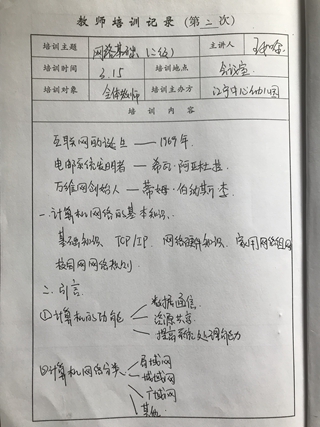 教师培训记录（第二次）
培训主题 网络基础（二级） 主讲人
培训时间 3.15 培训地点 会议室
培训对象 全体教师 培训主办方 江年中心幼儿园
培训内容
互联网的诞生——1969年.
电邮系统发明者——希瓦·阿亚杜莱
万维网创始人——蒂姆·伯纳斯李
一.计算机网络的基本知识.
基础知识 TCP/IP. 网络硬件知识. 家用网络组网
校园网网络规划.
二.引言.
①计算机的功能 数据通信.
资源共享
提高系统处理能力
②计算机网络分类 局域网
城域网
广域网
其他